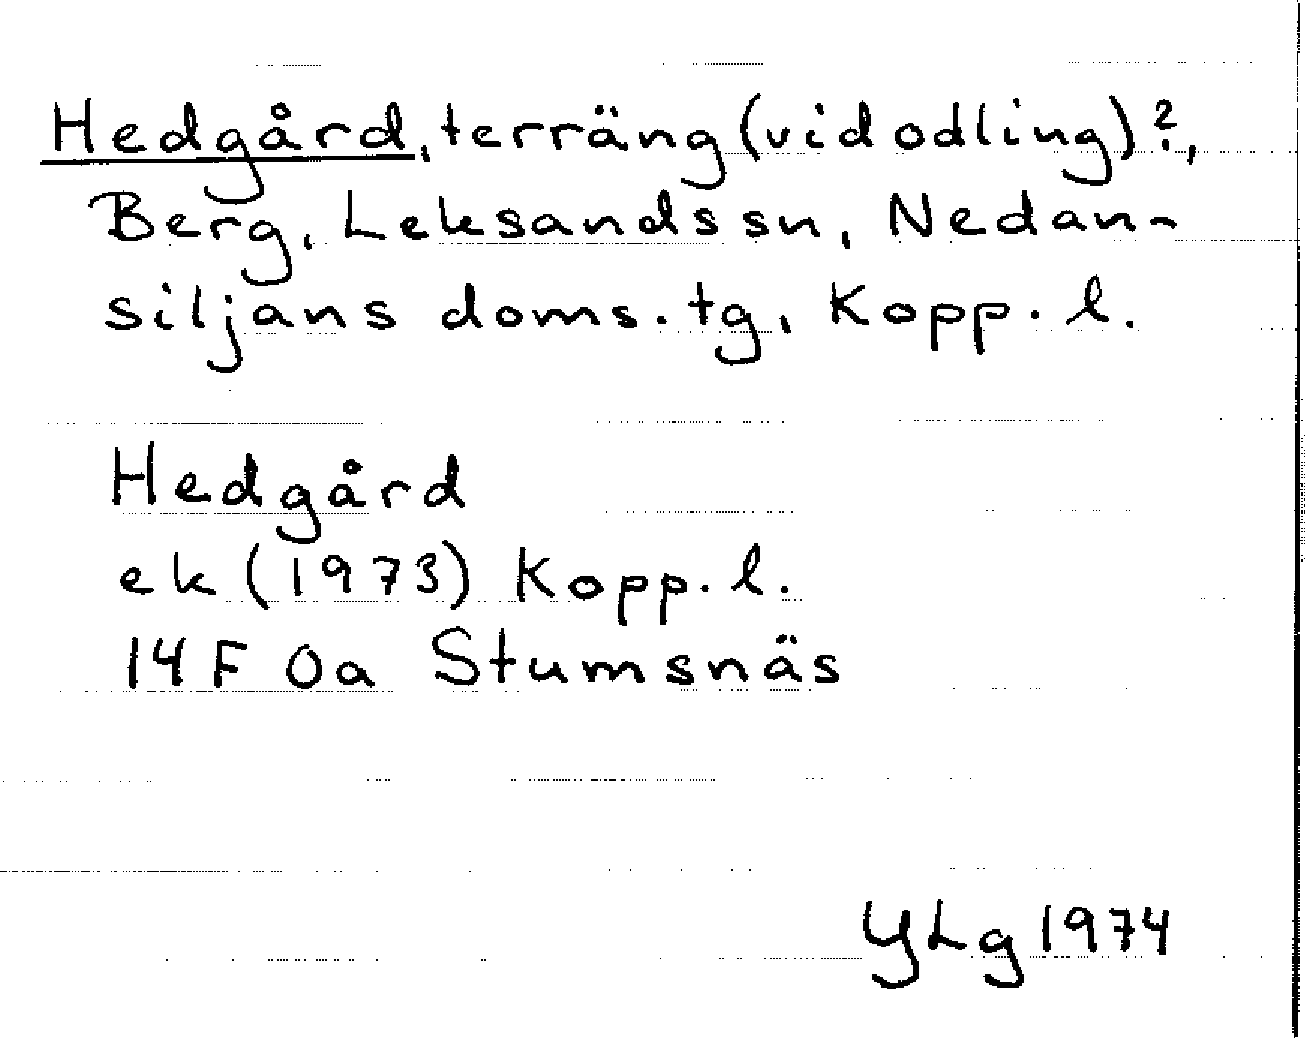 Hedgård, terräng (vid odling)?,
Berg, Leksands sn, Nedan-
siljans doms. tg, Kopp. l.
Hedgård
ek (1973) Kopp. l.
14 F 0a Stumsnäs
YLg 1974